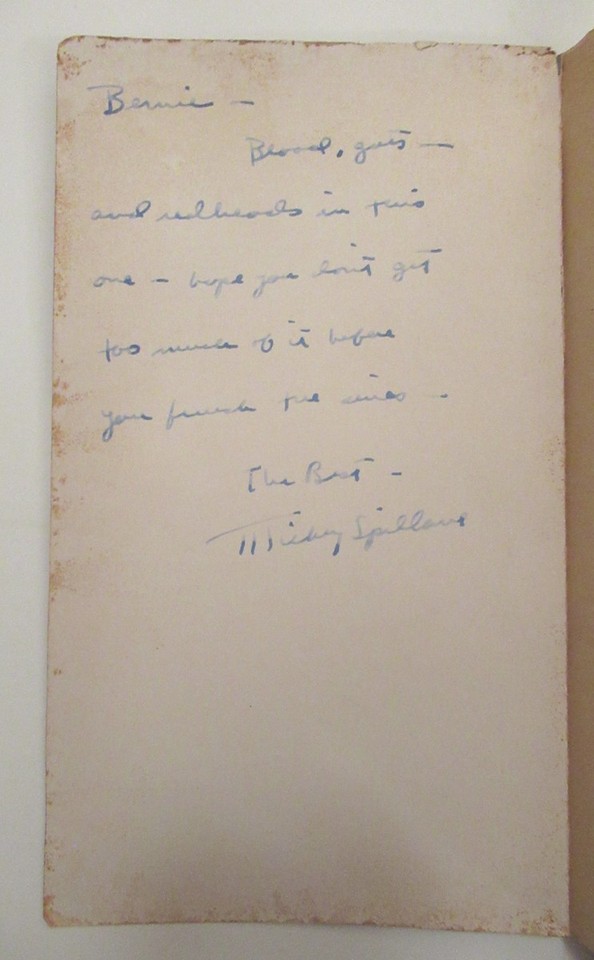 Bernie –
Blood, guts –
and redheads in this
one – hope you don't get
too much of it before
you finish the series –
The Best –
Mickey Spillane